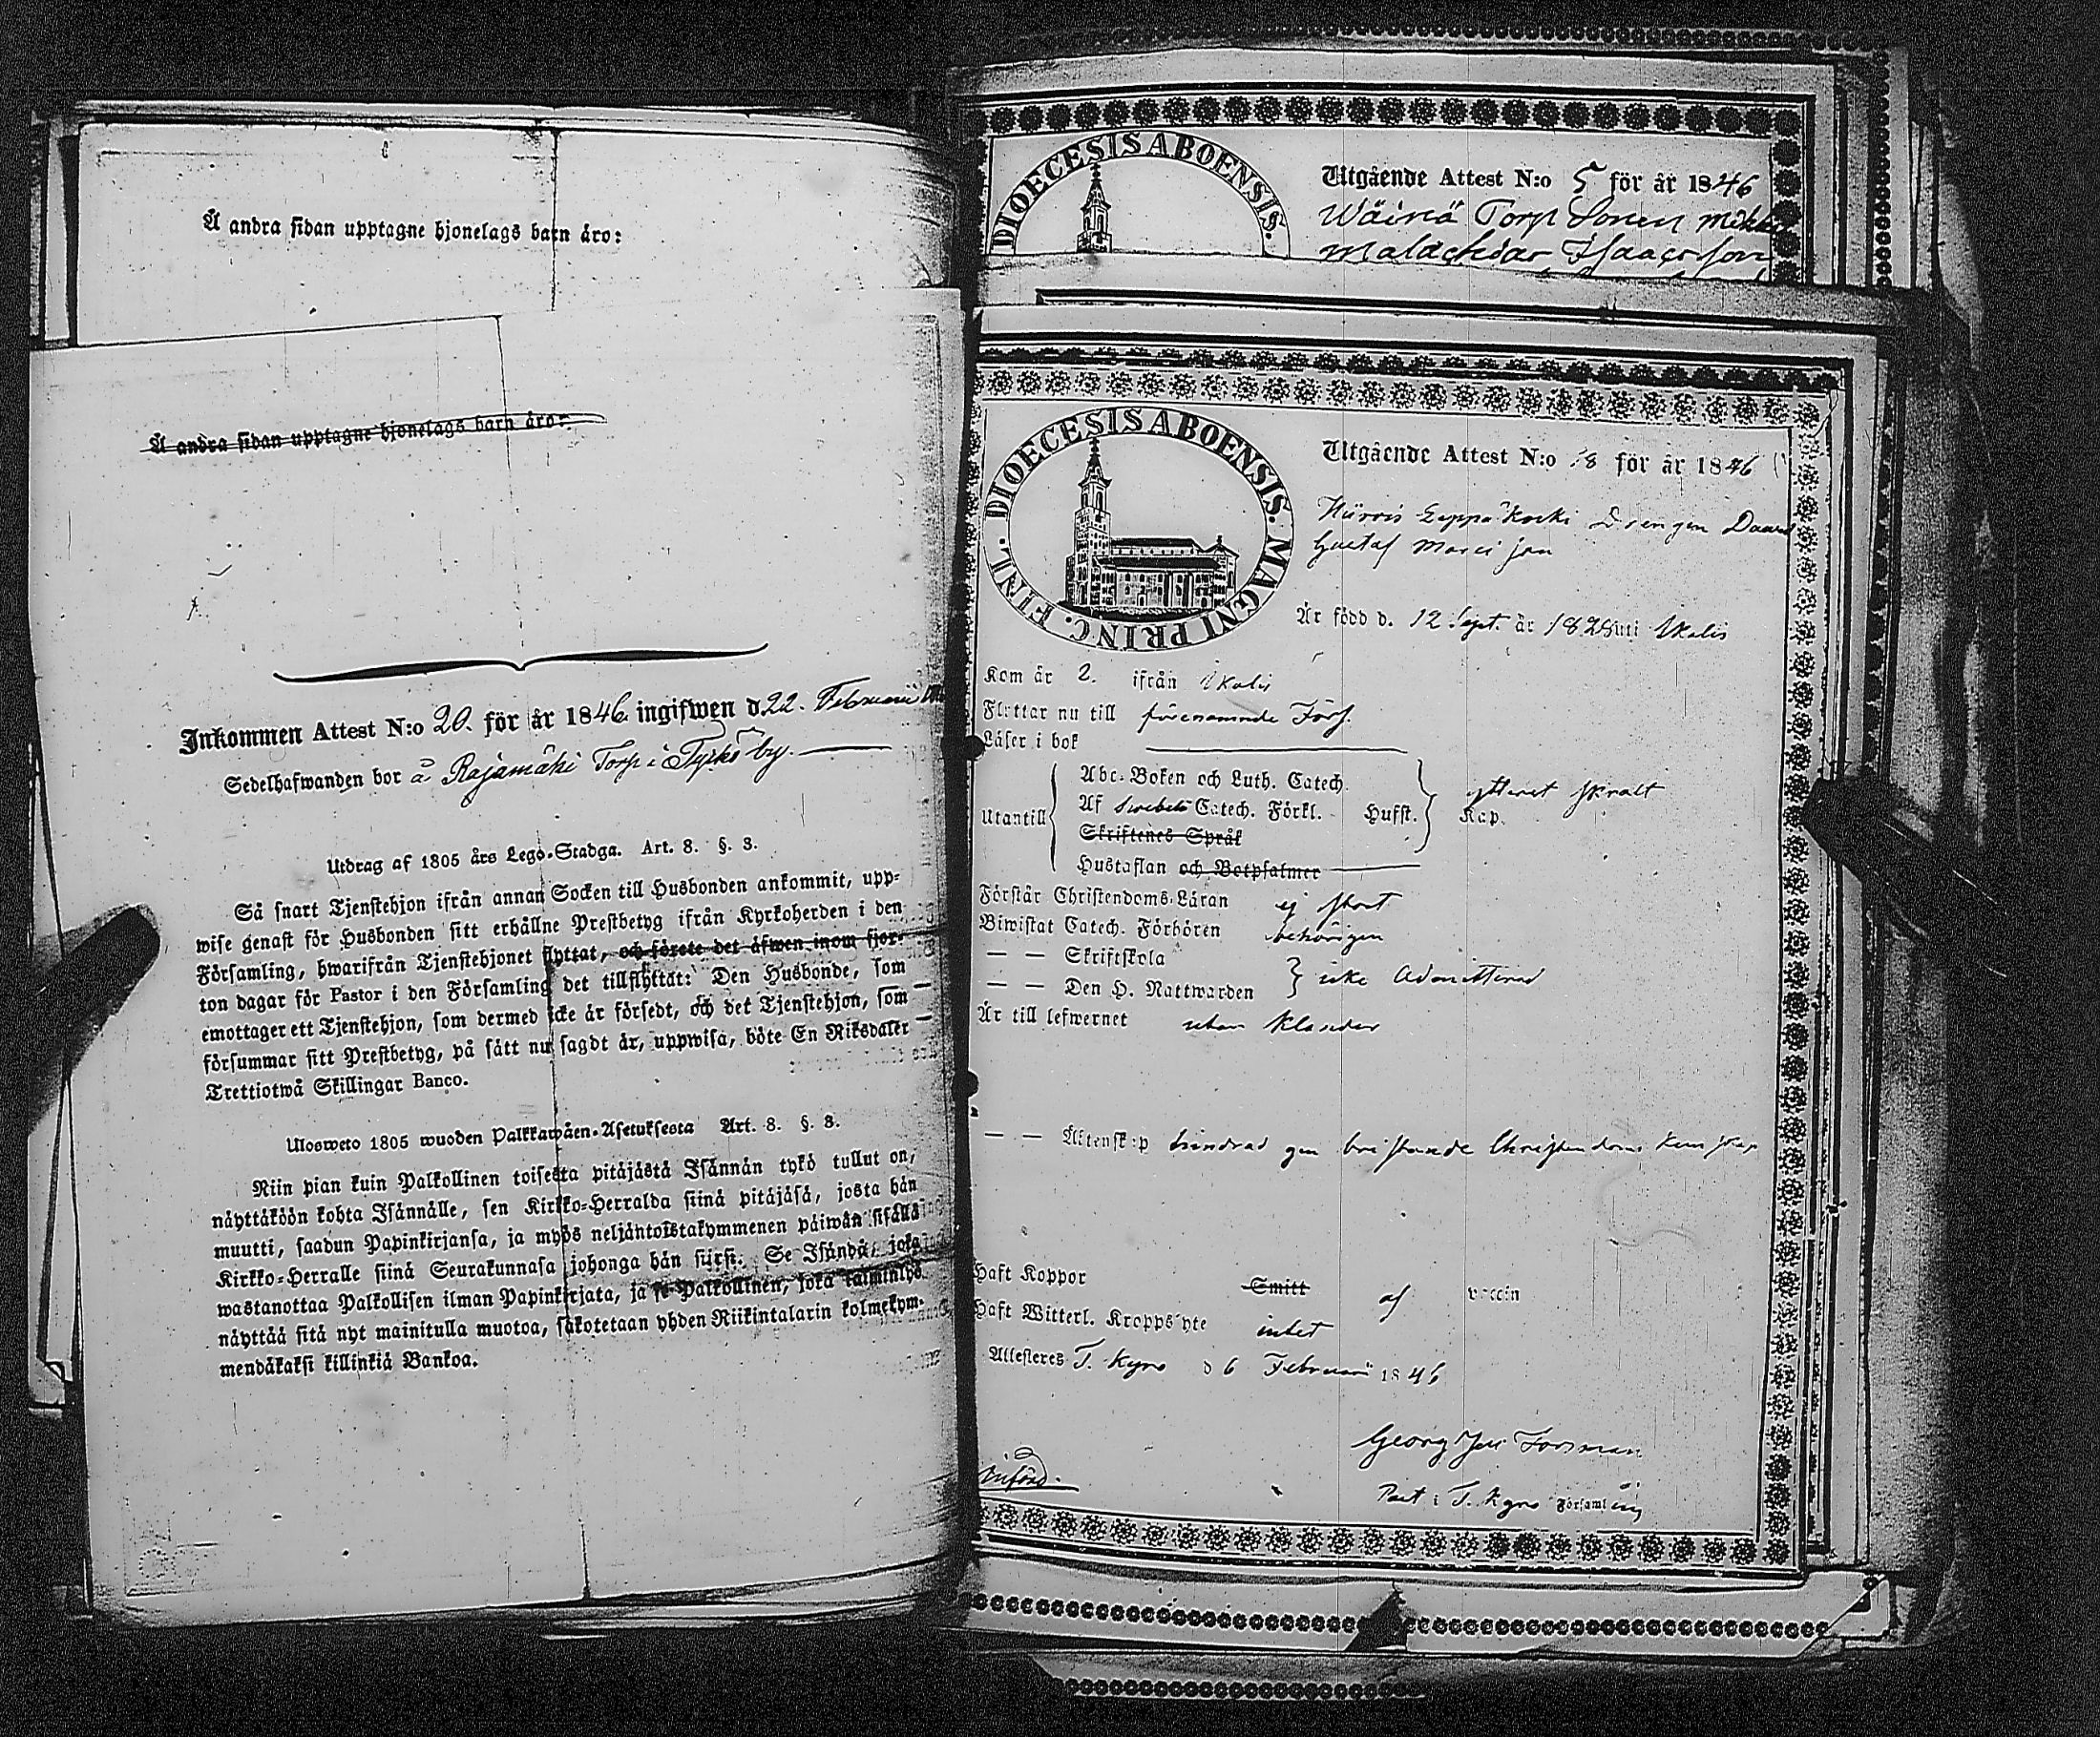 Å andra sidan upptagne hjonelags barn äro:
Å andra sidan upptagne hjonelags barn äro:
Inkommen Attest N:o 20. för år 1846 ingifwen d 22. Februarii
Sedelhafwanden bor å Rajamäki Torp i Tyrkö by.
Utdrag af 1805 års Lego-Stadga. Art. 8. §. 3.
Så snart Tjenstehjon ifrån annan Socken till Husbonden ankommit, upp-
wise genast för Husbonden sitt erhållne Prestbetyg ifrån Kyrkoherden i den
Församling, hwarifrån Tjenstehjonet flyttat, och förete det äfwen inom fjor-
ton dagar för Pastor i den Församling det tillflyttat: Den Husbonde, som
emottager ett Tjenstehjon, som dermed icke är försedt, och det Tjenstehjon, som
försummar sitt Prestbetyg, på sätt nu sagdt är, uppwisa, böte En Riksdaler
Trettiotwå Skillingar Banco.
Ulosweto 1805 wuoden Palkkawäen-Asetuksesta Art. 8. §. 3.
Niin pian kuin Palkollinen toisesta pitäjästä Isännän tykö tullut on,
näyttäköön kohta Isännälle, sen Kirkko-Herralda siinä pitäjäsä, josta hän
muutti, saadun Papinkirjansa, ja myös neljäntoistakymmenen päiwän sisällä
Kirkko-Herralle siinä Seurakunnasa johonga hän siirsi. Se Isändä, joka
wastanottaa Palkollisen ilman Papinkirjata, ja se Palkollinen, joka laiminlyö
näyttää sitä nyt mainitulla muotoa, sakotetaan yhden Riikintalarin kolmekym-
mendäkaksi killinkiä Bankoa.
DIOECESIS ABOENSIS.
Utgående Attest N:o 5 för år 1846
Wäinä Torp Sonen Mikko
Malachias Isaacsson
DIOECESIS ABOENSIS. MAGNI PRINC. FINL.
Utgående Attest N:o 18 för år 1846
Leppäkoski Drengen
Gustaf
Är född d. 12 Sept. år 1828 uti Ikalis
Kom år 2. ifrån Ikalis
Flyttar nu till förenämnde Förs.
Läser i bok
Abc-Boken och Luth. Catech.
Utantill Af Swebelii Catech. Förkl. Hufst. Kap. ytterst skralt
Skriftenes Språk
Hustaflan och Botpsalmer
Förstår Christendoms-Läran ej stort
Biwistat Catech. Förhören behörigen
— — Skriftskola
— — Den H. Nattwarden icke Admitterad
Är till lefwernet utan klander
— — Äktenskap hindrad gm bristande Christendoms kunskap
Haft Koppor Smitt af vaccin
Haft Witterl. Kroppslyte intet
Attesteres T. Kyro d 6 Februarii 1846
Georg Jac Forsman
Past i T. Kyro Församling
Införd.